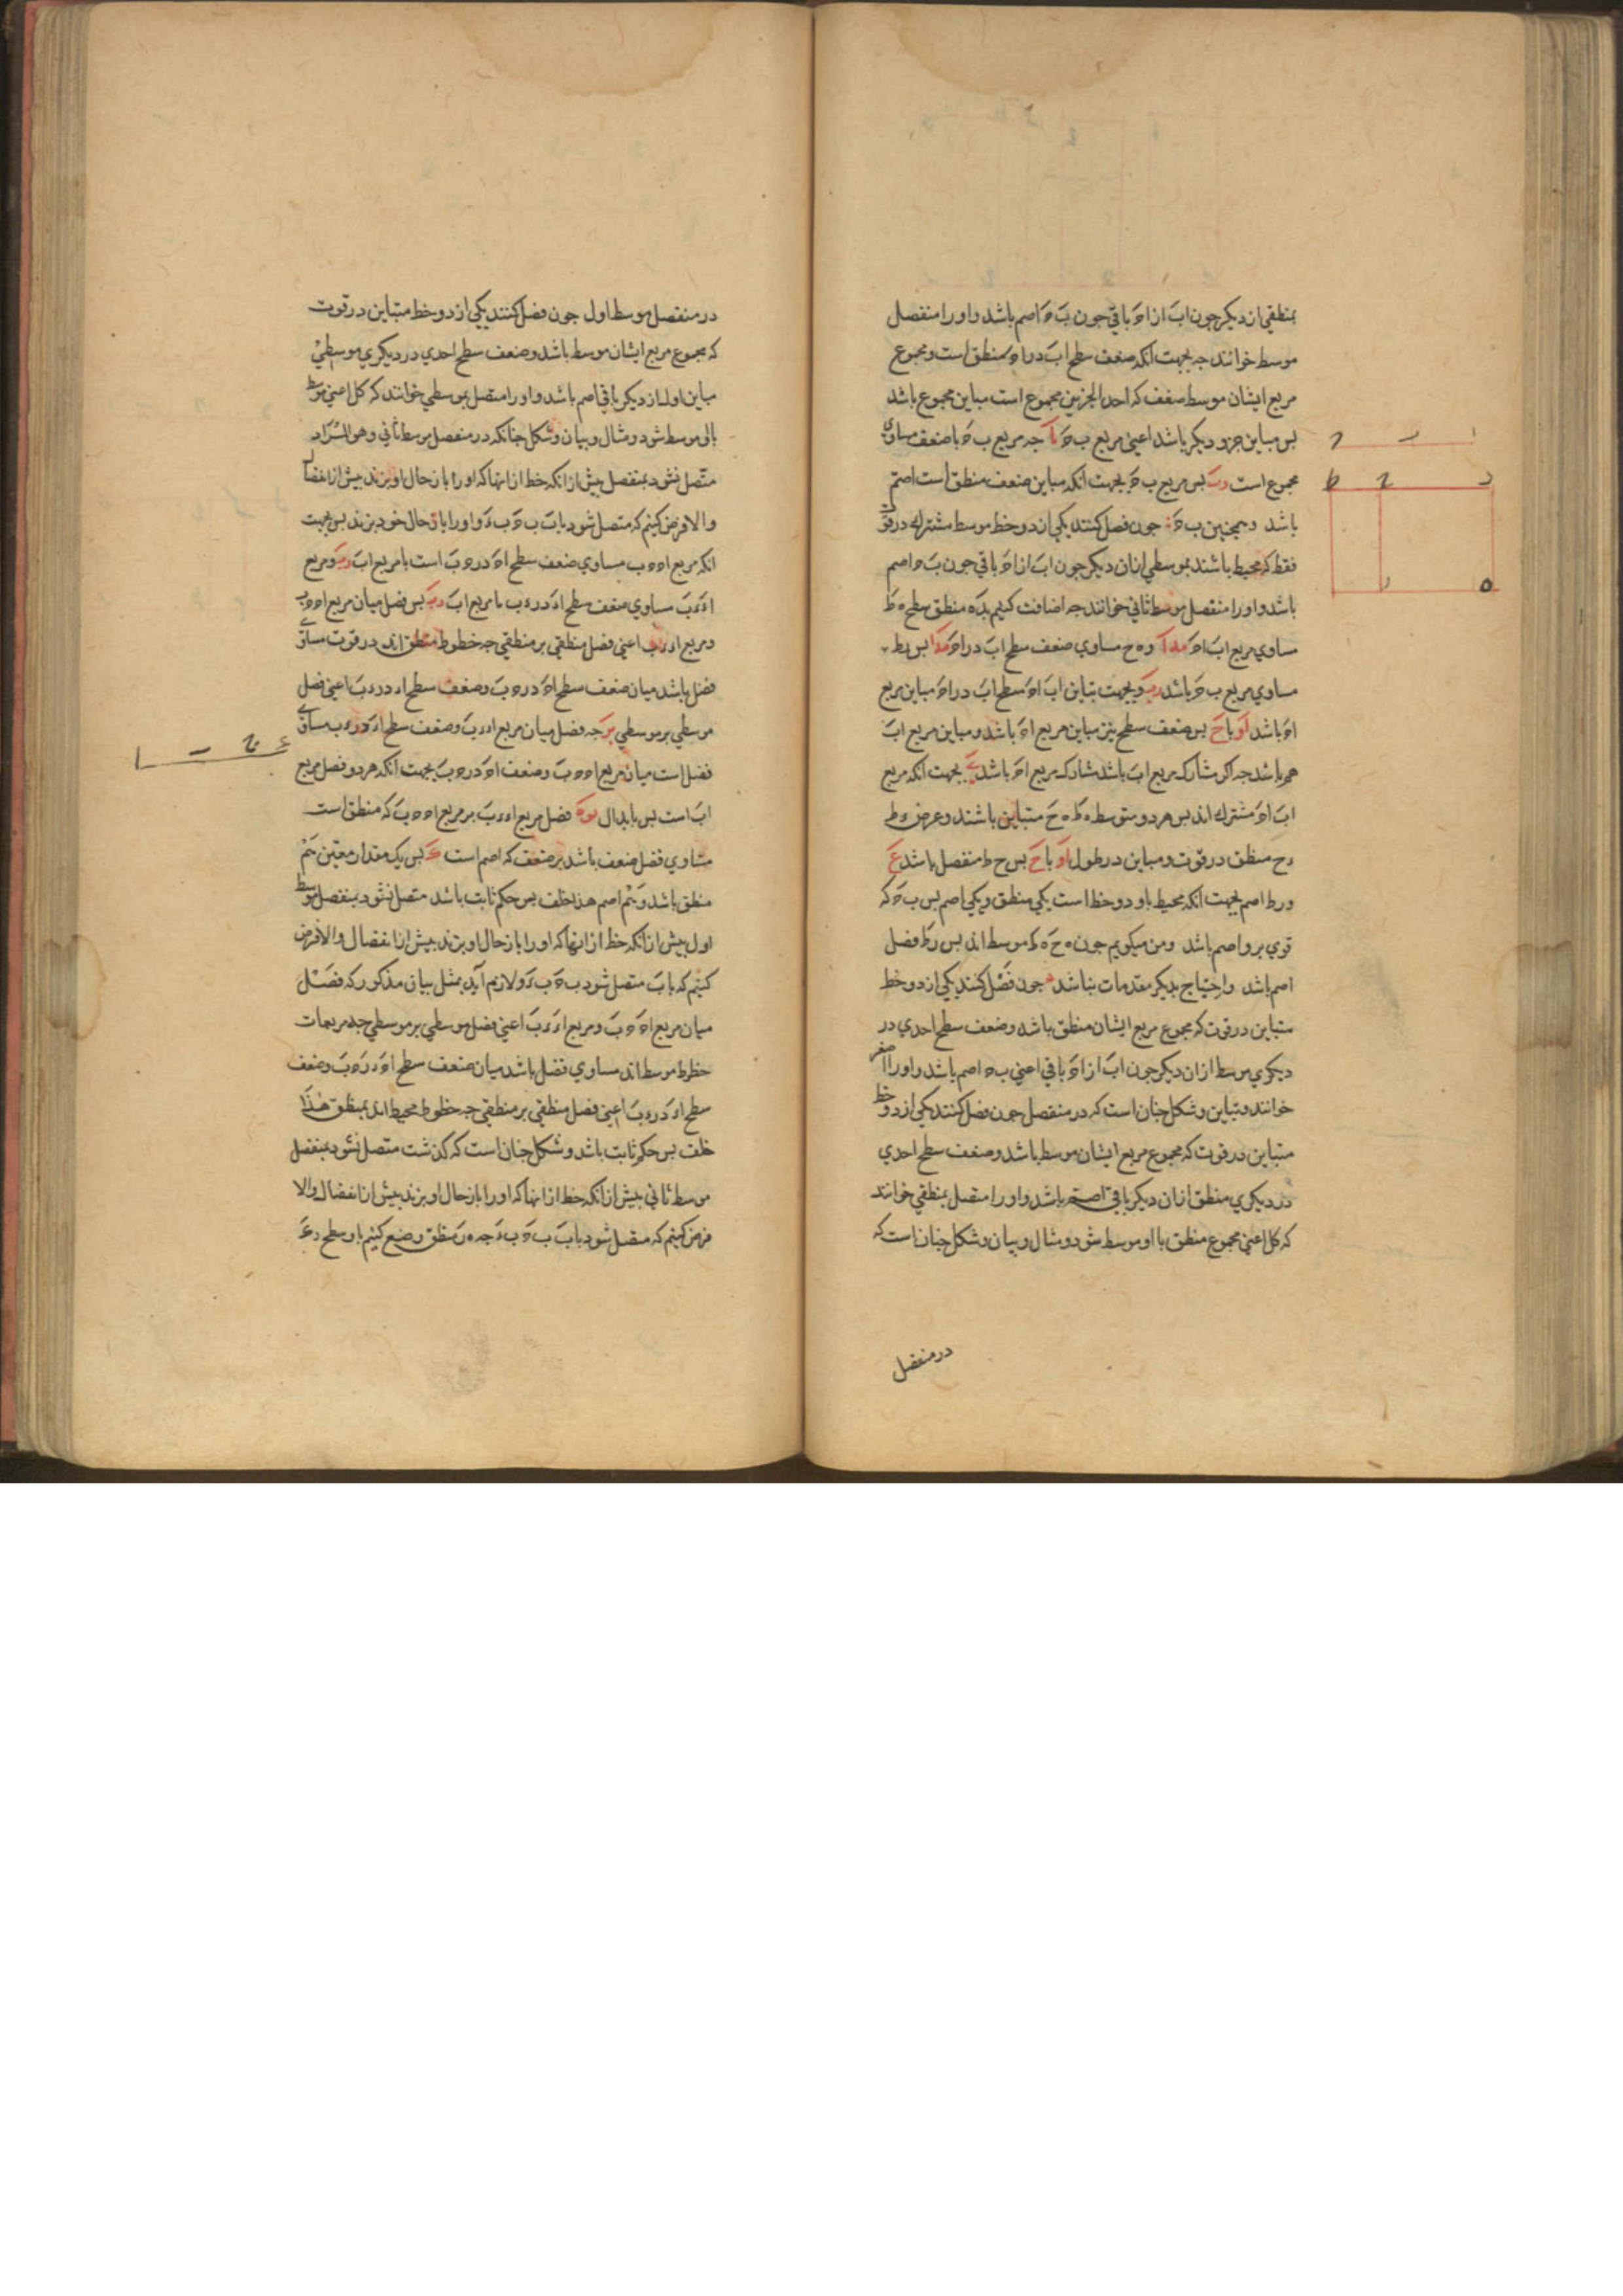 بمنطقی از دیکر چون اب از اه باقی چون ب ه اصم باشد و او را منفصل
موسط خوانند چه بجهت انکه ضعف سطح اب در اه منطق است و مجموع
مربع ایشان موسط ضعف که احد الجزئین مجموع است مباین مجموع باشد
بس مباین جزو دیکر باشد اعنی مربع ب ه چه مربع ب ه با ضعف مساوی
مجموع است بس مربع ب ه بجهت انکه مباین ضعف منطق است اصم
باشد و همچنین ب ه جون فصل کنند یکی از دو خط موسط مشترک در قوت
فقط که محیط باشند بموسطی ازان دیکر چون اب از اه باقی چون ب ه اصم
باشد و او را منفصل موسط ثانی خوانند چه اضافت کنیم بده منطق سطح ه ط
مساوی مربع اب اه و ه ح مساوی ضعف سطح اب در اه بس ر ط
مساوی مربع ب ه باشد و بجهت تباین اب اه سطح اب در اه مباین مربع
اه باشد او یا ح بس ضعف سطح نیز مباین مربع اه باشد و مباین مربع اب
هم باشد چه اکر مشارک مربع اب باشد مشارک مربع اه باشد بجهت انکه مربع
اب اه مشترک اند بس هر دو متوسط ه ط ه ح متباین باشند و عرض د ط
د ح منطق در قوت و مباین در طول او یا ح بس ح ط منفصل باشد
و ر ط اصم بجهت انکه محیط باو دو خط است یکی منطق و یکی اصم بس ب ه که
قوی برو اصم باشد و من میکویم چون ه ح ه ط موسط اند بس ر ط فضل
اصم باشد و احتیاج بدیکر مقدمات نباشد جون فصل کنند یکی از دو خط
متباین در قوت که مجموع مربع ایشان منطق باشد و ضعف سطح احدی در
دیکری موسط ازان دیکر چون اب از اه باقی اعنی ب ه اصم باشد و او را اصغر
خوانند و تباین و شکل چنان است که در منفصل جون فصل کنند یکی از دو خط
متباین در قوت که مجموع مربع ایشان موسط باشد و ضعف سطح احدی
در دیکری منطق ازان دیکر باقی اصم باشد و او را متصل بمنطقی خوانند
که کل اعنی مجموع منطق با او موسط شود و مثال و بیان و شکل چنان است که
در منفصل
در منفصل موسط اول جون فصل کنند یکی از دو خط متباین در قوت
که مجموع مربع ایشان موسط باشد و ضعف سطح احدی در دیکری موسطی
مباین اول از دیکر باقی اصم باشد و او را متصل بموسطی خوانند که کل اعنی موسط
بااو موسط شود و مثال و بیان و شکل چنانکه در منفصل موسط ثانی و هو المراد
متصل نشود بمنفصل بیش از انکه خط از انها که او را باز حال او برند بیش از انفصال
والا فرض کنیم که متصل شود باب ب ه ب ء و او را با حال خود برند بس بجهت
انکه مربع اه ه ب مساوی ضعف سطح اه در ه ب است با مربع اب و مربع
اء ء ب مساوی ضعف سطح اء در ء ب با مربع اب بس فضل میان مربع اه ه ب
و مربع اء ء ب اعنی فضل منطقی بر منطقی چه خطوط منطق اند در قوت مساوی
فضل باشد میان ضعف سطح اه در ه ب و ضعف سطح اء در ء ب اعنی فضل
موسطی بر موسطی چه فضل میان مربع اء ء ب و ضعف سطح اء در ء ب مساوی
فضل است میان مربع اه ه ب و ضعف اه در ه ب بجهت انکه هر دو فضل مربع
اب است بس بابدال فضل مربع اء ء ب بر مربع اه ه ب که منطق است
مساوی فضل ضعف باشد بر ضعف که اصم است بس یک مقدار معین هم
منطق باشد و هم اصم هذا خلف بس حکم ثابت باشد متصل نشود بمنفصل موسط
اول بیش از انکه خط از انها که او را باز حال او برند بیش از انفصال والا فرض
کنیم که باب متصل شود ب ه ب ء و لازم آید بمثل بیان مذکور که فضل
میان مربع اه ه ب و مربع اء ء ب اعنی فضل موسطی بر موسطی چه مربعات
خطوط موسط اند مساوی فضل باشد میان ضعف سطح اه در ه ب و ضعف
سطح اء در ء ب اعنی فضل منطقی بر منطقی چه خطوط محیط اند بمنطق هذا
خلف بس حکم ثابت باشد و شکل چنان است که کذشت متصل نشود بمنفصل
موسط ثانی بیش از انکه خط از انها که او را باز حال او برند بیش از انفصال والا
فرض کنیم که متصل شود باب ب ه ب ء چه ه ر منطق وضع کنیم باو سطح